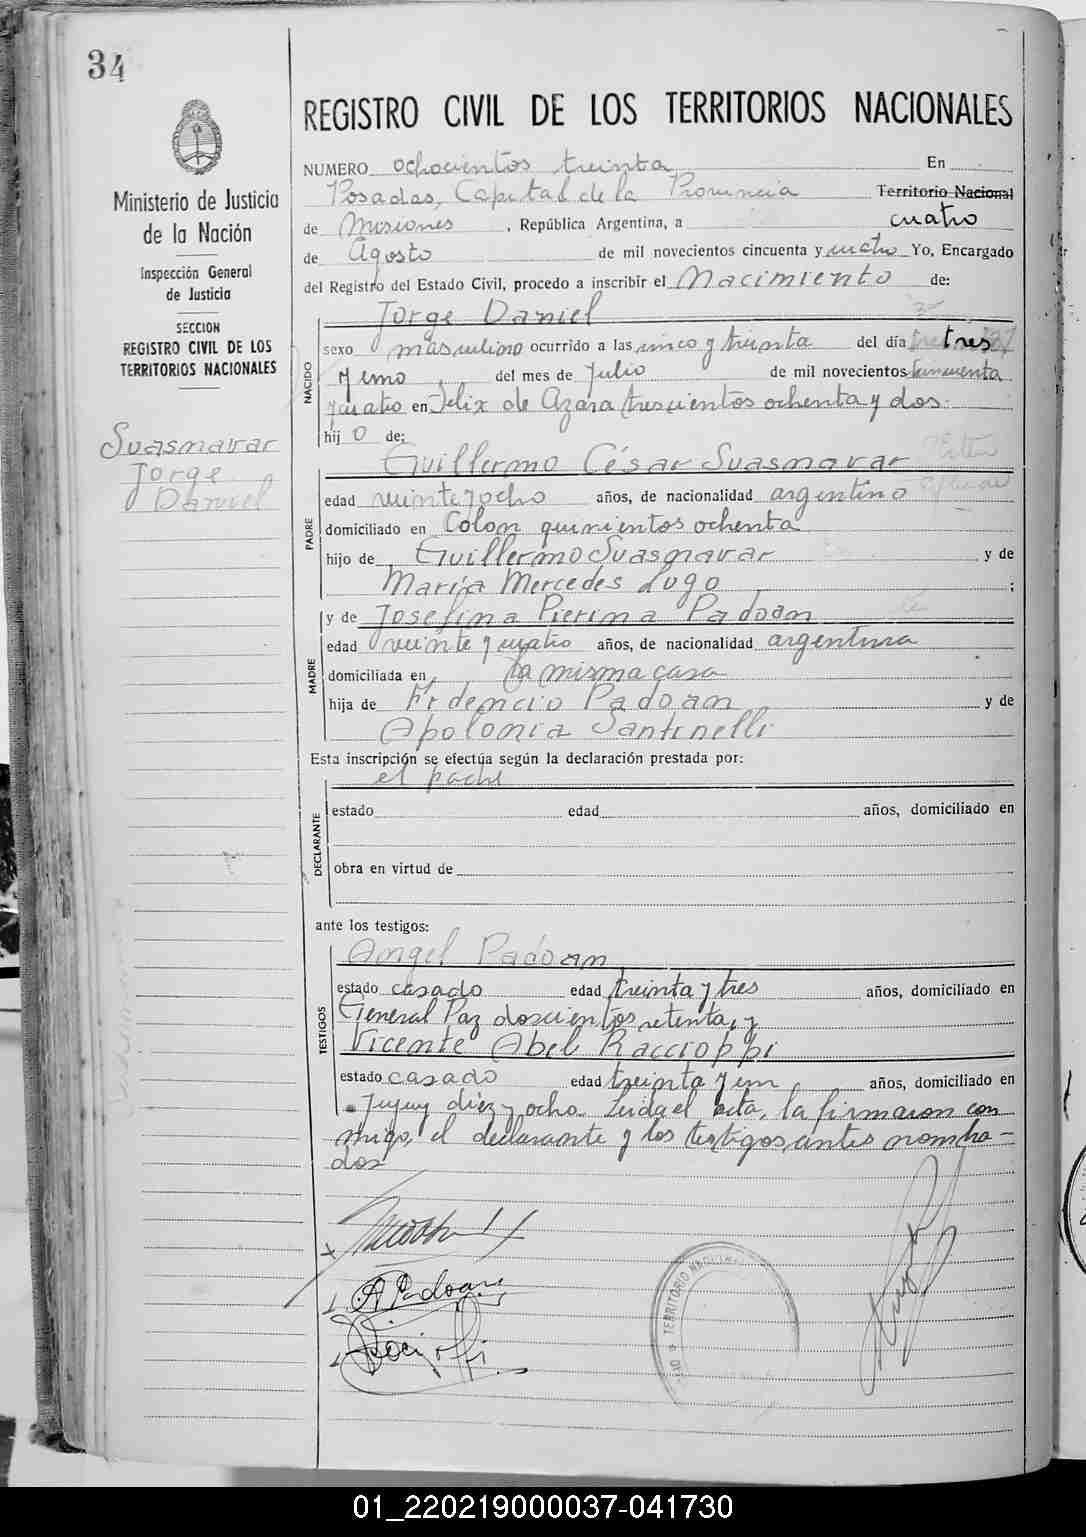 34
REGISTRO CIVIL DE LOS TERRITORIOS NACIONALES
Ministerio de Justicia
de la Nación
Inspección General
de Justicia
SECCION
REGISTRO CIVIL DE LOS
TERRITORIOS NACIONALES
Suasnavar
Jorge
Daniel
NUMERO ochocientos treinta En
Posadas, Capital de la Provincia Territorio Nacional
de Misiones, República Argentina, a cuatro
de Agosto de mil novecientos cincuenta y cuatro Yo, Encargado
del Registro del Estado Civil, procedo a inscribir el Nacimiento de:
Jorge Daniel
NACIDO
sexo masculino ocurrido a las cinco y treinta del día tres
del mes de Julio de mil novecientos cincuenta
y cuatro en Felix de Azara trescientos ochenta y dos
hijo de:
PADRE
Guillermo César Suasnavar
edad veinte y ocho años, de nacionalidad argentino
domiciliado en Colon quinientos ochenta
hijo de Guillermo Suasnavar y de
María Mercedes Lugo ;
MADRE
y de Josefina Pierina Padoan
edad veinte y cuatro años, de nacionalidad argentina
domiciliada en la misma casa
hija de Padoan y de
Apolonia Santinelli
Esta inscripción se efectúa según la declaración prestada por:
el padre
DECLARANTE
estado edad años, domiciliado en
obra en virtud de
ante los testigos:
TESTIGOS
Angel Padoan
estado casado edad treinta y tres años, domiciliado en
General Paz doscientos setenta, y
Vicente Abel Raccioppi
estado casado edad treinta y un años, domiciliado en
Jujuy diez y ocho. Leida el acta, la firmaron con
migo, el declarante y los testigos antes nombra-
dos
A Padoan
TERRITORIO
01_220219000037-041730